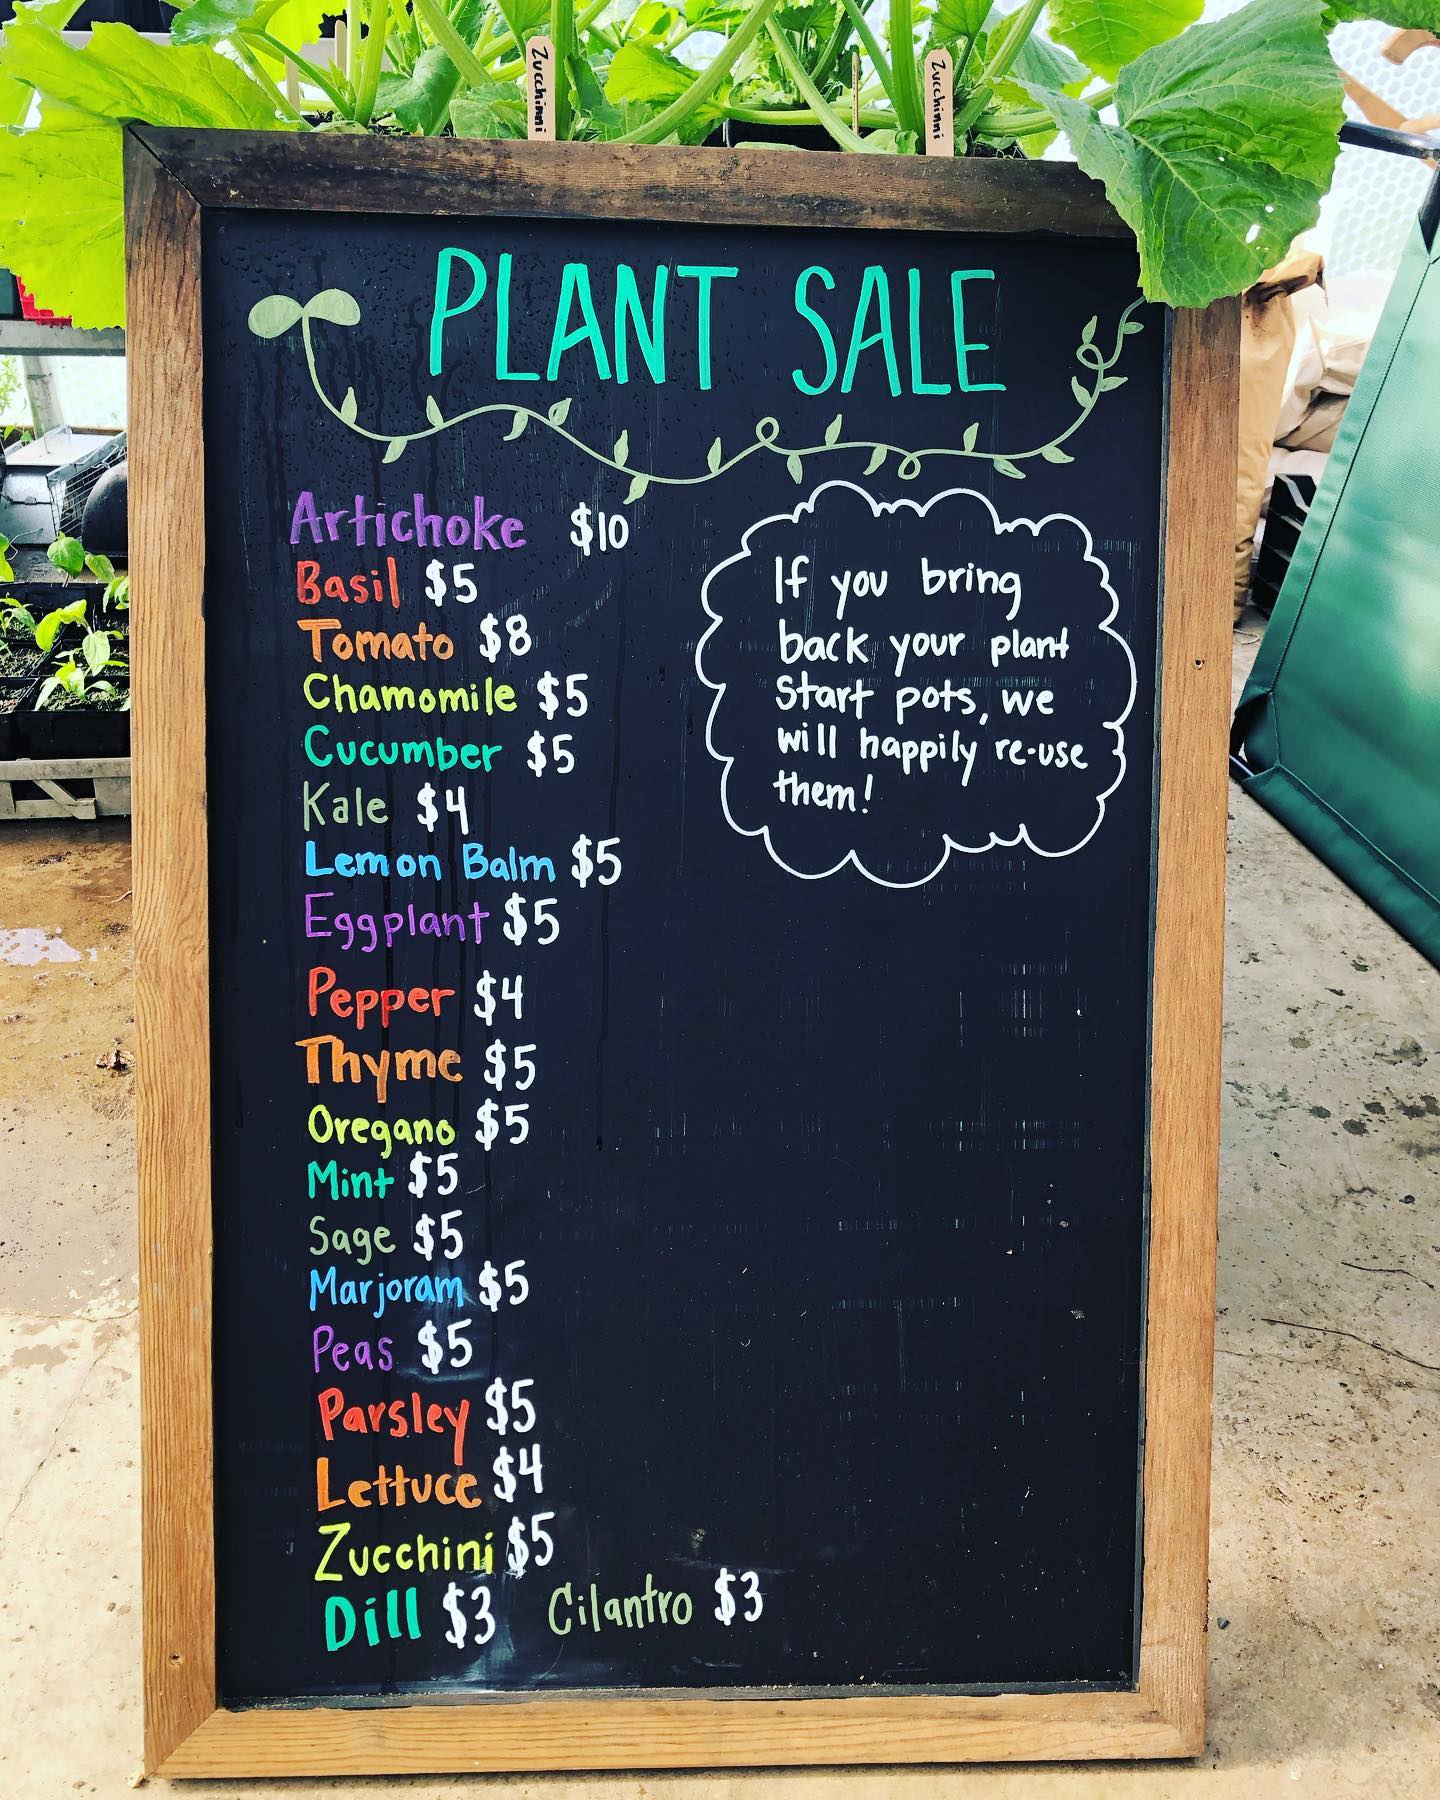 Zucchinni
Zucchinni
PLANT SALE
Artichoke $10
Basil $5
Tomato $8
Chamomile $5
Cucumber $5
Kale $4
Lemon Balm $5
Eggplant $5
Pepper $4
Thyme $5
Oregano $5
Mint $5
Sage $5
Marjoram $5
Peas $5
Parsley $5
Lettuce $4
Zucchini $5
Dill $3 Cilantro $3
If you bring
back your plant
start pots, we
will happily re-use
them!